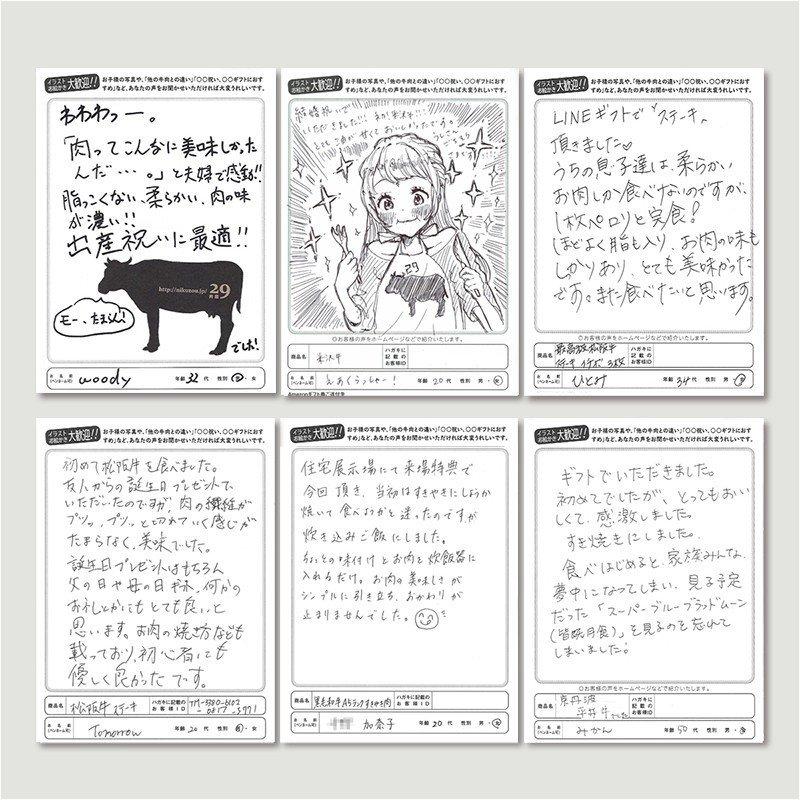 イラスト お絵かき 大歓迎!!
お子様の写真や、「他の牛肉との違い」「〇〇祝い、〇〇ギフトにおす
すめ」など、あなたの声をお聞かせいただければ大変うれしいです。
わわわっー。
「肉ってこんなに美味しかった
んだ・・・。」と夫婦で感動!!
脂っこくない、柔らかい、肉の味
が濃い!!
出産祝いに最適!!
http://nikuzou.jp/ 29
モー、たまらん!
名前
(ペンネーム可) woody 年齢 32代 性別 男・女
イラスト お絵かき 大歓迎!!
お子様の写真や、「他の牛肉との違い」「〇〇祝い、〇〇ギフトにおす
すめ」など、あなたの声をお聞かせいただければ大変うれしいです。
結婚祝いで
いただきました!!
29
◎お客様の声をホームページなどで紹介いたします。
商品名 米沢牛 ハガキに記載のお客様ID
名前
(ペンネーム可) 年齢 20代 性別 男・女
イラスト お絵かき 大歓迎!!
お子様の写真や、「他の牛肉との違い」「〇〇祝い、〇〇ギフトにおす
すめ」など、あなたの声をお聞かせいただければ大変うれしいです。
LINEギフトで"ステーキ"
頂きました♡
うちの息子達は、柔らかい
お肉しか食べないのですが、
1枚ペロリと完食!
ほどよく脂も入り、お肉の味も
しっかりあり、とても美味かった
です。また食べたいと思います。
◎お客様の声をホームページなどで紹介いたします。
商品名 最高級松阪牛 ステーキ 3枚 ハガキに記載のお客様ID
名前
(ペンネーム可) ひとみ 年齢 34代 性別 男・女
イラスト お絵かき 大歓迎!!
お子様の写真や、「他の牛肉との違い」「〇〇祝い、〇〇ギフトにおす
すめ」など、あなたの声をお聞かせいただければ大変うれしいです。
初めて松阪牛を食べました。
友人からの誕生日プレゼントで
いただいたのですが、肉の繊維が
プツッ、プツッと切れていく感じが
たまらなく、美味でした。
誕生日プレゼントはもちろん
父の日や母の日ギフト、何かの
お礼とかにもとても良いと
思います。お肉の焼き方なども
載っており、初心者にも
優しく良かったです。
商品名 松阪牛ステーキ ハガキに記載のお客様ID
名前
(ペンネーム可) Tomorrow 年齢 20代 性別 男・女
イラスト お絵かき 大歓迎!!
お子様の写真や、「他の牛肉との違い」「〇〇祝い、〇〇ギフトにおす
すめ」など、あなたの声をお聞かせいただければ大変うれしいです。
住宅展示場にて来場特典で
今回頂き、当初はすきやきにしようか
焼いて食べようかと迷ったのですが
炊き込みご飯にしました。
ちょっとの味付けとお肉を炊飯器に
入れるだけ。お肉の美味しさが
シンプルに引き立ち、おかわりが
止まりませんでした。
商品名 黒毛和牛A5ランクすきやき肉 ハガキに記載のお客様ID
名前
(ペンネーム可) 加奈子 年齢 30代 性別 男・女
イラスト お絵かき 大歓迎!!
お子様の写真や、「他の牛肉との違い」「〇〇祝い、〇〇ギフトにおす
すめ」など、あなたの声をお聞かせいただければ大変うれしいです。
ギフトでいただきました。
初めてでしたが、とってもおい
しくて、感激しました。
すき焼きにしました。
食べはじめると、家族みんな、
夢中になってしまい、見る予定
だった「スーパーブルーブラッドムーン
(皆既月食)」を見るのを忘れて
しまいました!
◎お客様の声をホームページなどで紹介いたします。
商品名 京丹波 平井牛 ハガキに記載のお客様ID
名前
(ペンネーム可) みかん 年齢 50代 性別 男・女